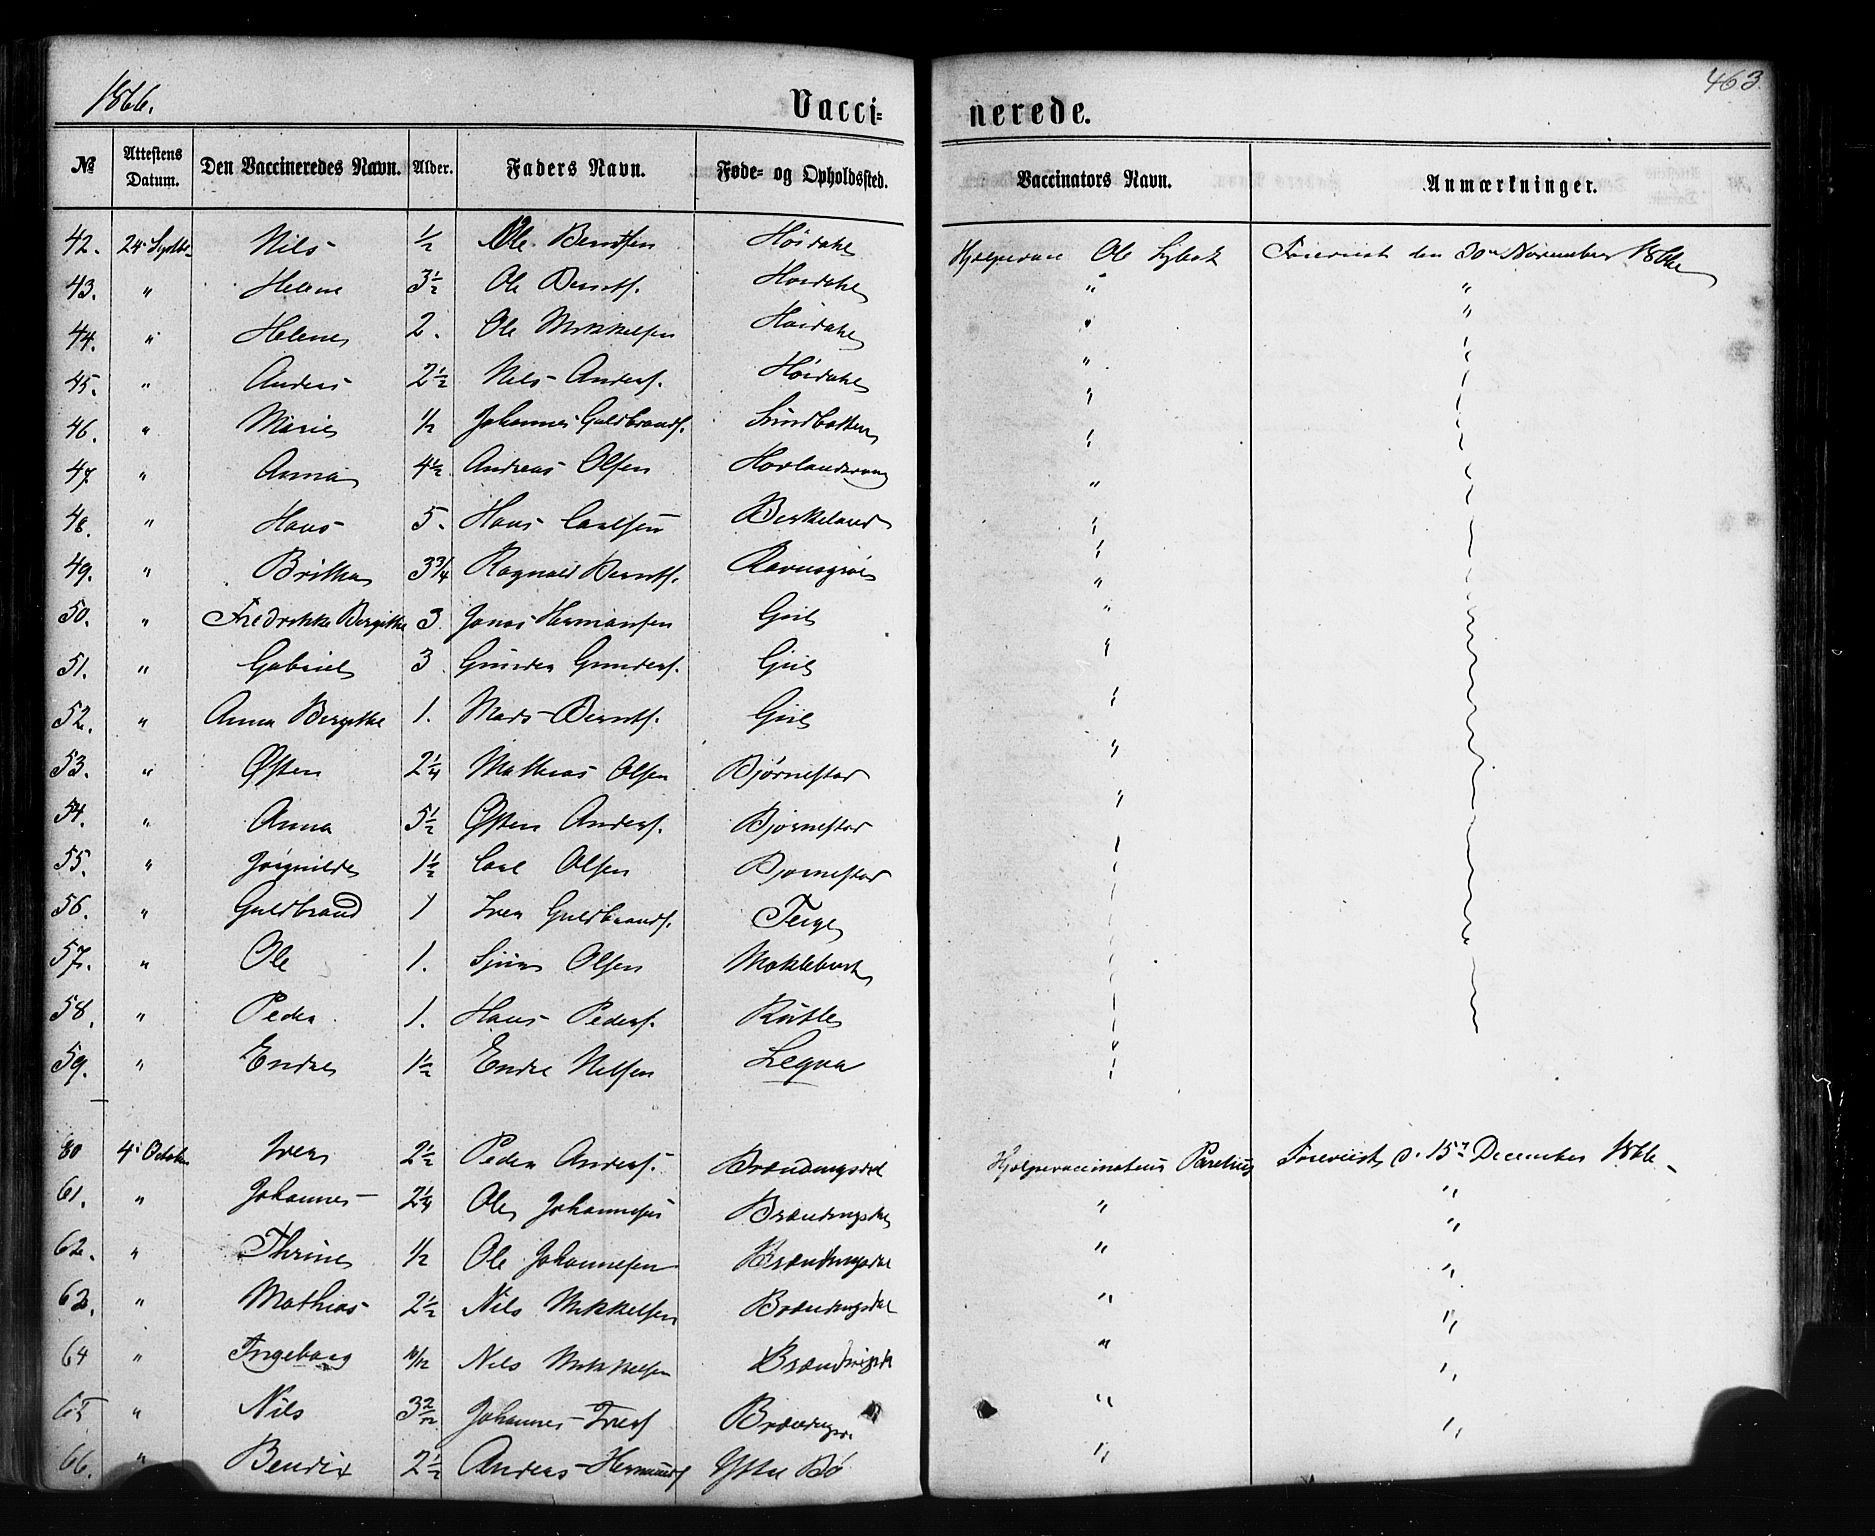 1866.
463
Vacci- nerede.
№ Attestens Datum. Den Vaccineredes Navn. Alder. Faders Navn. Føde- og Opholdssted. Vaccinators Navn. Anmærkninger.
42. 24 Septbr Nils ½ Ole Berntsen Høidahl Hjelpevacc Ole 30 November 1866
43. " Helene 3½ Ole Bernts. Høidahl " "
44. " Helene 2. Ole Mikkelsen Høidahl " "
45. " Anders 2½ Nils Anders. Høidahl "
46. " Marie ½ Johannes Guldbrands. Sundbotten "
47. " Anna 4½ Andreas Olsen "
48. " Hans 5. Hans Carlsen Birkeland "
49. " Britha 3¾ Ragnald Bernts. "
50. " Fredrikke Bergitte 3. Jonas Hermansen "
51. " Gabriel 3 Gunder Gunders. "
52. " Anna Bergitte 1. Mads Bernts. "
53. " Østen 2¼ Mathias Olsen Bjørnestad "
54. " Anna 5½ Østen Anders. Bjørnestad "
55. " 1½ Carl Olsen Bjørnestad
56. " Guldbrand 1 Iver Guldbrands.
57. " Ole 1. Sjur Olsen Møklebust
58. " Peder 1. Hans Peders. Rutle
59. " Endre 1½ Endre Nilsen
60 4 October Iver 2½ Peder Anders. Brændingsdal Hjelpevaccinateur 15 December 1866
61. " Johannes 2¼ Ole Johannesen Brændingsdal " "
62. " Thrine ½ Ole Johannesen Brændingsdal " "
63. " Mathias 2½ Nils Mikkelsen Brændingsdal " "
64 " Ingeborg Nils Mikkelsen Brændingsdal " "
65 " Nils 3 2/12 Johannes Ivers " "
66. " Bendix 2½ Anders Ytre Bø " "